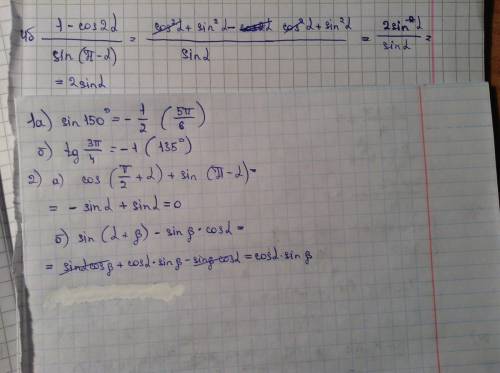 4б) (1 - cos2α)/(sin(π-α)) = (cos²α + sin²α - cos²α + sin²α)/(sinα) = (2sin²α)/(sinα) =
= 2sinα
1а) sin 150° = - 1/2 (5π/6)
б) tg 3π/4 = -1 (135°)
2) а) cos (π/2 + α) + sin (π-α) =
= - sinα + sinα = 0
б) sin (α + β) - sinβ · cosα =
= sinαcosβ + cosα · sinβ - sinβ·cosα = cosα · sinβ